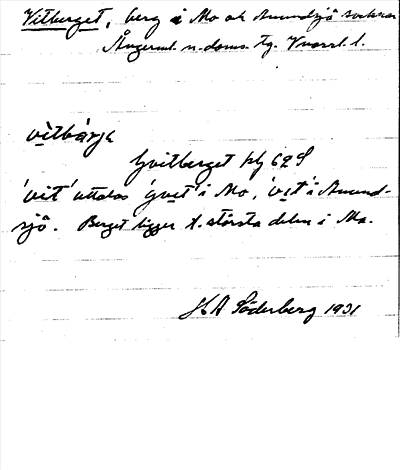 Vitberget, berg i Mo ok Anundsjö socknar
Ångerml. n. doms. tg. Vnorrl. l.
vitbärje
Gvitberget hfj 62 S
'vit' uttalas 'gvit' i Mo, 'vit' i Anund-
sjö. Berget ligger t. största delen i Mo.
H A Söderberg 1931